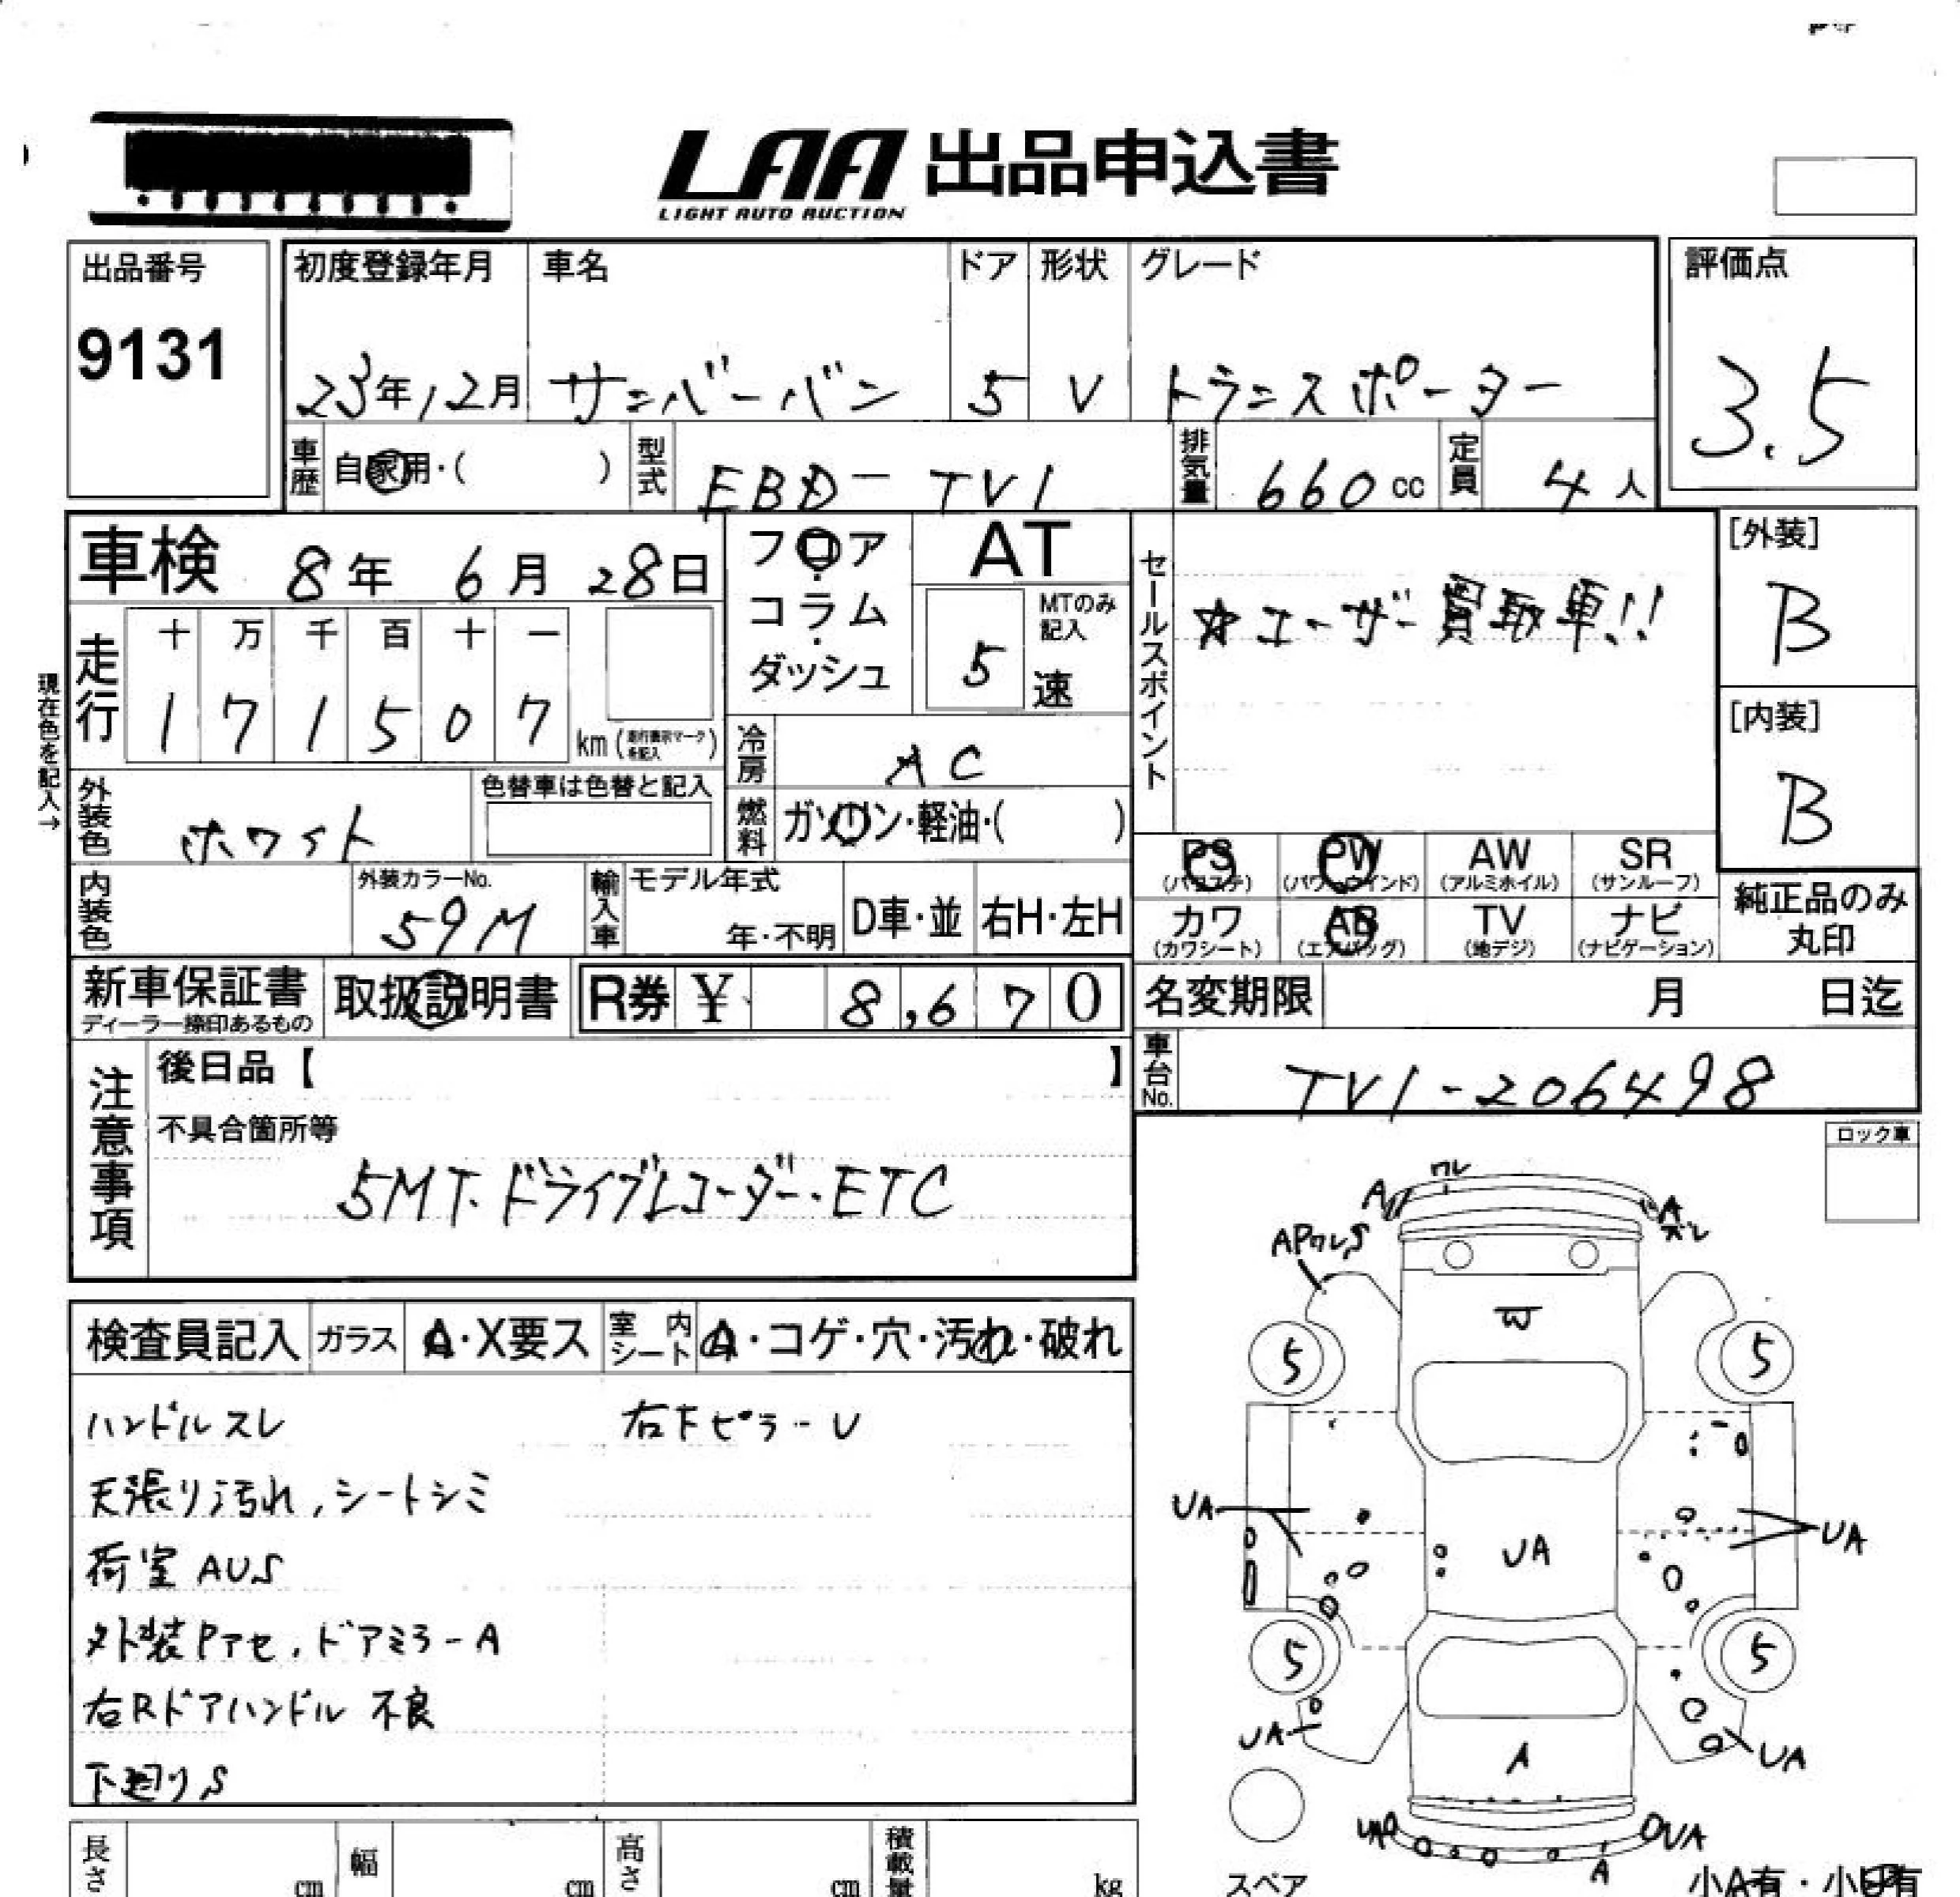 LAA 出品申込書
LIGHT AUTO AUCTION
出品番号
9131
初度登録年月
23年12月
車名
サンバーバン
ドア
5
形状
V
グレード
トランスポーター
評価点
3.5
車歴
自家用・( )
型式
EBD-TV1
排気量
660cc
定員
4人
車検 8年 6月 28日
フロア
・
コラム
・
ダッシュ
AT
MTのみ記入
5速
セールスポイント
☆ユーザー買取車!!
[外装]
B
[内装]
B
現在色を記入→
走行
十 万 千 百 十 一
1 7 1 5 0 7 km(走行表示マークを記入)
冷房
AC
燃料
ガソリン・軽油・( )
外装色
ホワイト
色替車は色替と記入
内装色
外装カラーNo.
59M
輸入車
モデル年式
年・不明
D車・並
右H・左H
PS
(パワステ)
PW
(パワーウインド)
AW
(アルミホイル)
SR
(サンルーフ)
カワ
(カワシート)
AB
(エアバッグ)
TV
(地デジ)
ナビ
(ナビゲーション)
純正品のみ
丸印
新車保証書
ディーラー捺印あるもの
取扱説明書
R券 ¥ 8,670
名変期限 月 日迄
車台No.
TV1-206498
注意事項
後日品【 】
不具合箇所等
5MT.ドライブレコーダー.ETC
ロック車
検査員記入
ガラス
A・X要ス
室内シート
A・コゲ・穴・汚れ・破れ
ハンドルスレ
右下ピラーU
天張り汚れ,シートシミ
荷室AUS
外装Pアセ,ドアミラーA
右Rドアハンドル不良
下廻りS
ワレ
A
A
ズレ
APワレS
W
5
5
UA
UA
UA
5
5
UA
UA
A
UA
UA
A
スペア
小A有・小U有
長さ
cm
幅
cm
高さ
cm
積載量
kg